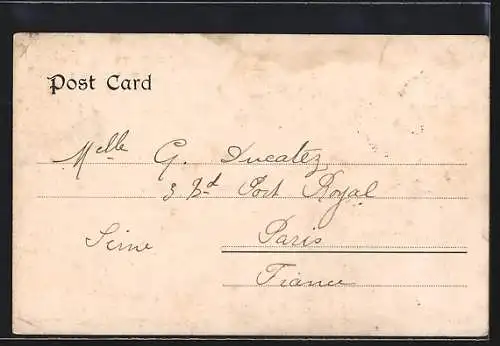 Post Card
Melle G. Ducatez
3 Bd Port Royal
Seine Paris
France